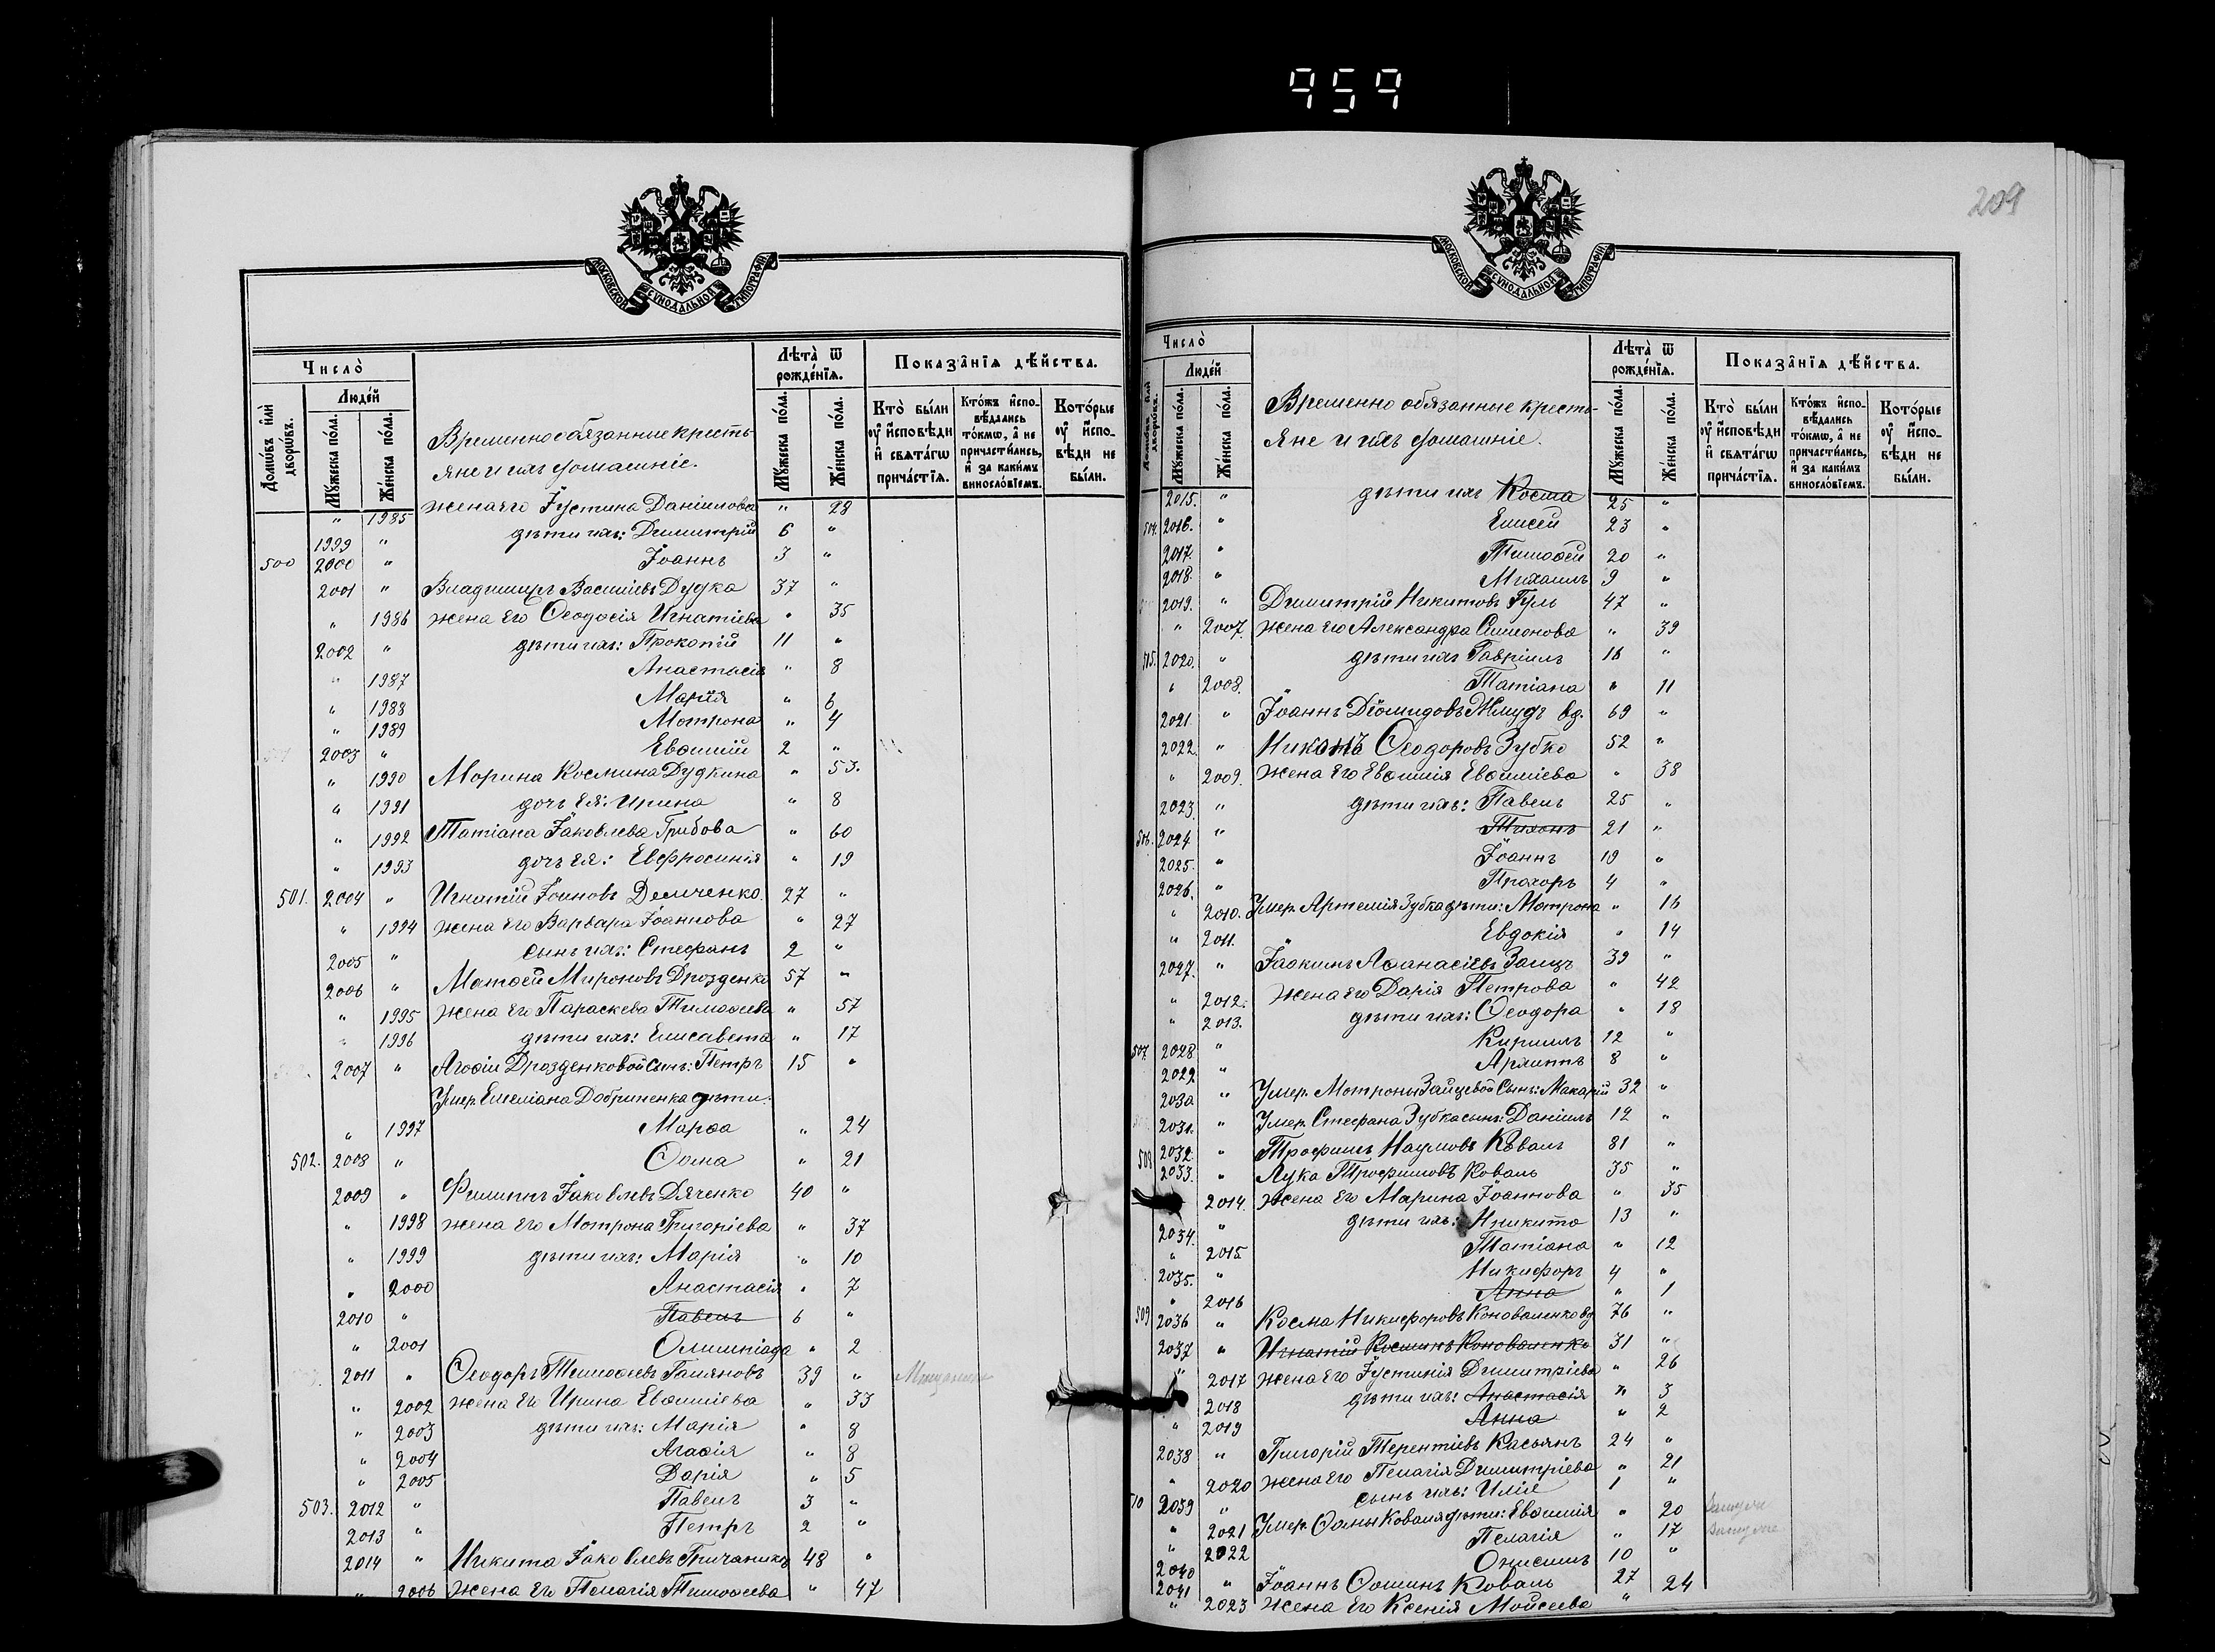 959
209
МОСКОВСКОЙ СѴНОДАЛЬНОЙ ТИПОГРАФІИ
Число̀
Домѡ́въ и҆лѝ дворѡ́въ.
Люде́й
Мꙋ́жеска по́ла.
Же́нска по́ла.
Временно обязанные кресть-
яне и ихъ домашніе.
Лѣта̀ ѿ рожде́нїѧ.
Мꙋ́жеска по́ла.
Же́нска по́ла.
Показа̑нїѧ дѣ́йства.
Кто̀ бы́ли ᲂу҆ и҆сповѣ́ди и҆ свѧта́гѡ прича́стїѧ.
Кто́жъ и҆спо-вѣ́дались то́кмѡ, а҆ не причасти́лись, и҆ за каки́мъ винносло́вїемъ.
Кото́рые ᲂу҆ и҆спо-вѣ́ди не бы́ли.
" 1985 жена его Іустина Даніилова " 28
1999 " дѣти ихъ: Димитрій 6 "
500 2000 " Іоаннъ 3 "
2001 " Владиміръ Васильевъ Дудка 37 "
" 1986 жена его Ѳеодосія Игнатіева " 35
2002 " дѣти ихъ: Прокопій 11 "
" 1987 Анастасія " 8
" 1988 Марія " 6
" 1989 Мотрона " 4
2003 " Евѳимій 2 "
" 1990 Морина Космина Дудкина " 53.
" 1991 дочь ея: Ирина " 8
" 1992 Татіана Іаковлева Грибова " 60
" 1993 дочь ея: Евфросинія " 19
501. 2004 " Игнатій Іоановъ Демченко. 27 "
" 1994 жена его Варвара Іоаннова " 27
2005 " сынъ ихъ: Стефанъ 2 "
2006 " Матѳей Мироновъ Дрозденко 57 "
" 1995 жена его Параскева Тимоѳеева " 57
" 1996 дѣти ихъ: Елисавета " 17
2007 " Агаѳіи Дрозденковой сынъ: Петръ 15 "
Умер. Емеліана Добриненка дѣти:
" 1997 Марѳа " 24
502. 2008 " Ѳома " 21
2009 " Филиппъ Іаковлевъ Дяченко 40 "
" 1998 жена его Мотрона Григоріева " 37
" 1999 дѣти ихъ: Марія " 10
" 2000 Анастасія " 7
2010 " Павелъ 6 "
" 2001 Олимпіада " 2
2011 " Ѳеодоръ Тимоѳеевъ Галяновъ 39 "
" 2002 жена его Ирина Евѳиміева " 33
" 2003 дѣти ихъ: Марія " 8
" 2004 Агаѳія " 8
" 2005 Дарія " 5
503. 2012 " Павелъ 3 "
2013 " Петръ 2 "
2014 " Никита Іаковлевъ Гричаникъ 48 "
" 2006 жена его Пелагія Тимоѳеева " 47
МОСКОВСКОЙ СѴНОДАЛЬНОЙ ТИПОГРАФІИ
Число̀
Домѡ́въ и҆лѝ дворѡ́въ.
Люде́й
Мꙋ́жеска по́ла.
Же́нска по́ла.
Временно обязанные кресть-
яне и ихъ домашніе.
Лѣта̀ ѿ рожде́нїѧ.
Мꙋ́жеска по́ла.
Же́нска по́ла.
Показа̑нїѧ дѣ́йства.
Кто̀ бы́ли ᲂу҆ и҆сповѣ́ди и҆ свѧта́гѡ прича́стїѧ.
Кто́жъ и҆спо-вѣ́дались то́кмѡ, а҆ не причасти́лись, и҆ за каки́мъ винносло́вїемъ.
Кото́рые ᲂу҆ и҆спо-вѣ́ди не бы́ли.
2015. " дѣти ихъ Косма 25 "
504. 2016. " Елисей 23 "
2017. " Тимоѳей 20 "
2018. " Михаилъ 9 "
2019. " Димитрій Никитовъ Гуль 47 "
" 2007. жена его Александра Симеонова " 39
505. 2020. " дѣти ихъ Гавріилъ 16 "
" 2008. Татіана " 11
2021. " Іоаннъ Діомидовъ Жмудъ вд. 69 "
2022. " Никонъ Ѳеодоровъ Зубко 52 "
" 2009. жена его Евѳимія Евѳиміева " 38
2023. " дѣти ихъ: Павелъ 25 "
506. 2024 " Тихонъ 21 "
2025. " Іоаннъ 19 "
2026. " Прохоръ 4 "
" 2010. Умер. Артемія Зубка дѣти: Мотрона " 16
" 2011. Евдокія " 14
2027. " Іоакимъ Аѳанасіевъ Заицъ 39 "
" 2012. жена его Дарія Петрова " 42
" 2013. дѣти ихъ: Ѳеодора " 18
507. 2028 " Кириллъ 12 "
2029 " Архиппъ 8 "
2030 " Умер. Мотроны Зайцевой сынъ: Макарій 32 "
2031. " Умер. Стефана Зубка сынъ: Даніилъ 12 "
508 2032. " Трофимъ Наумовъ Коваль 81 "
2033. " Лука Трофимовъ Коваль 35 "
2014. жена его Марина Іоаннова " 35
2034. " дѣти ихъ: Никита 13 "
" 2015 Татіана " 12
2035. " Никифоръ 4 "
" 2016 Анна " 1
509 2036 " Косма Никифоровъ Коноваленко вд 76 "
2037 " Игнатій Косминъ Коноваленко 31 "
" 2017 жена его Іустинія Димитріева " 26
2018 дѣти ихъ: Анастасія " 3
" 2019 Анна " 2
2038 " Григорій Терентіевъ Касьянъ 24 "
" 2020 жена его Пелагія Димитріева " 21
510 2039 " сынъ ихъ: Илія 1 "
" 2021 Умер. Ѳомы Коваля дѣти: Евѳимія " 20
" 2022 Пелагія " 17
2040 Онисимъ 10 "
2041 " Іоаннъ Ѳоминъ Коваль 27
" 2023 жена его Ксенія Моисеева " 24